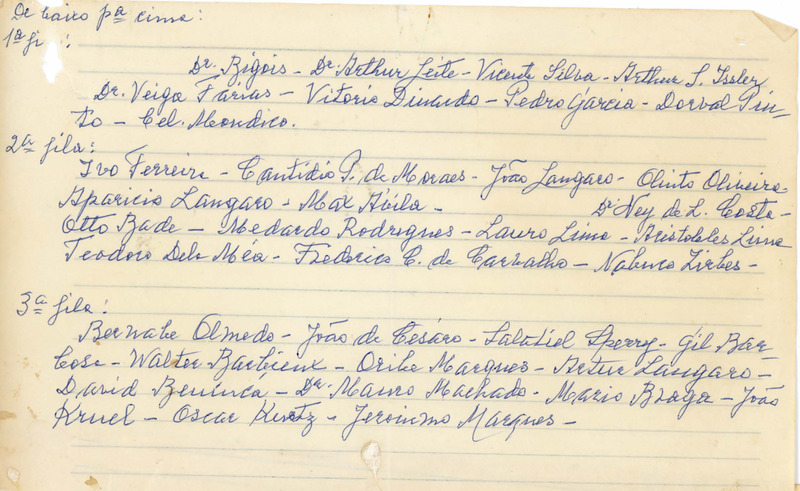 De baixo pª cima:
1ª fi :
Dr. Bigois - Dr. Arthur Leite - Vicente Silva - Arthur S. Issler
Dr. Veiga Farias - Vitorio Dinardo - Pedro Garcia - Dorval Pin-
to - Cel. Mondico.
2ª fila:
Ivo Ferreira - Cantídio P. de Moraes - João Langaro - Olinto Oliveira
Aparicio Langaro - Max Ávila - Dr Ney de L. Costa -
Otto Bade - Medardo Rodrigues - Lauro Lima - Aristoteles Lima
Teodoro Dela Méa - Frederico C. de Carvalho - Nabuco Zirbes -
3ª fila:
Bernabe Olmedo - João de Cesáro - Salatiel Sperry - Gil Bar-
bosa - Walter Barbieux - Oribe Marques - Artur Langaro -
David Beninca - Dr. Mauro Machado - Mario Braga - João
Kruel - Oscar Kurtz - Jeronimo Marques -